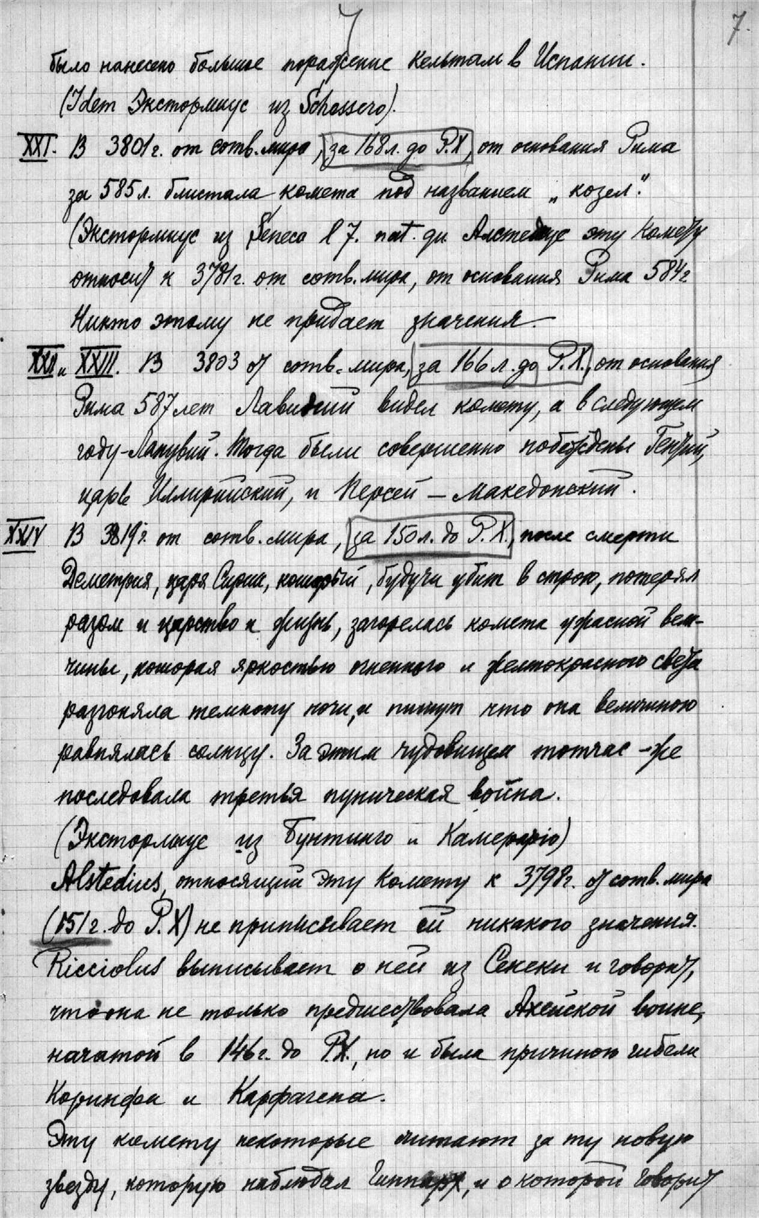 7.
было нанесено большое поражение кельтам в Испании.
(Idem Экстормиус из Schossero).
XXI. В 3801 г. от сотв. мира, за 168 л. до Р.Х, от основания Рима
за 585 л. блистала комета под названием „козел".
(Экстормиус из Seneca l 7. nat. qu Алстедиус эту комету
относит к 3781 г. от сотв. мира, от основания Рима 584 г.
Никто этому не придает значения.
XXII и XXIII. В 3803 от сотв. мира, за 166 л. до Р.Х., от основания
Рима 587 лет Лавидний видел комету, а в следующем
году - Ланувий. Тогда были совершенно побеждены Генций,
царь Иллирийский, и Персей — Македонский.
XXIV В 3819 г. от сотв. мира, за 150 л. до Р.Х., после смерти
Деметрия, царя Сирии, который, будучи убит в строю, потерял
разом и царство и жизнь, загорелась комета ужасной вели-
чины, которая яркостью огненного и желтокрасного света
разгоняла темноту ночи, и пишут что она величиною
равнялась солнцу. За этим чудовищем тотчас-же
последовала третья пуническая война.
(Экстормиус из Бунтинго и Камерарiо)
Alstedius, относящий эту комету к 3798 г. от сотв. мира
(151 г. до Р.Х) не приписывает ей никакого значения.
Ricciolus выписывает о ней из Сенеки и говорит,
что она не только предшествовала Ахейской войне,
начатой в 146 г. до Р.Х, но и была причиною гибели
Коринфа и Карфагена.
Эту комету некоторые считают за ту новую
звезду, которую наблюдал Гиппарх, и о которой говорит